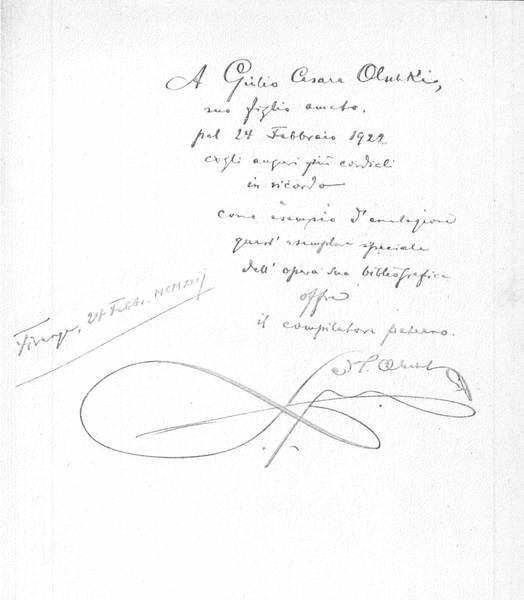 A Giulio Cesare Olschki,
suo figlio amato,
pel 24 Febbraio 1922
cogli auguri più cordiali
in ricordo
e
come esempio d'emulazione
quest' esemplare speciale
dell' opera sua bibliografica
offre
il compilatore paterno.
Firenze, 24 Febbr. MCMXXII
L. S. Olschki